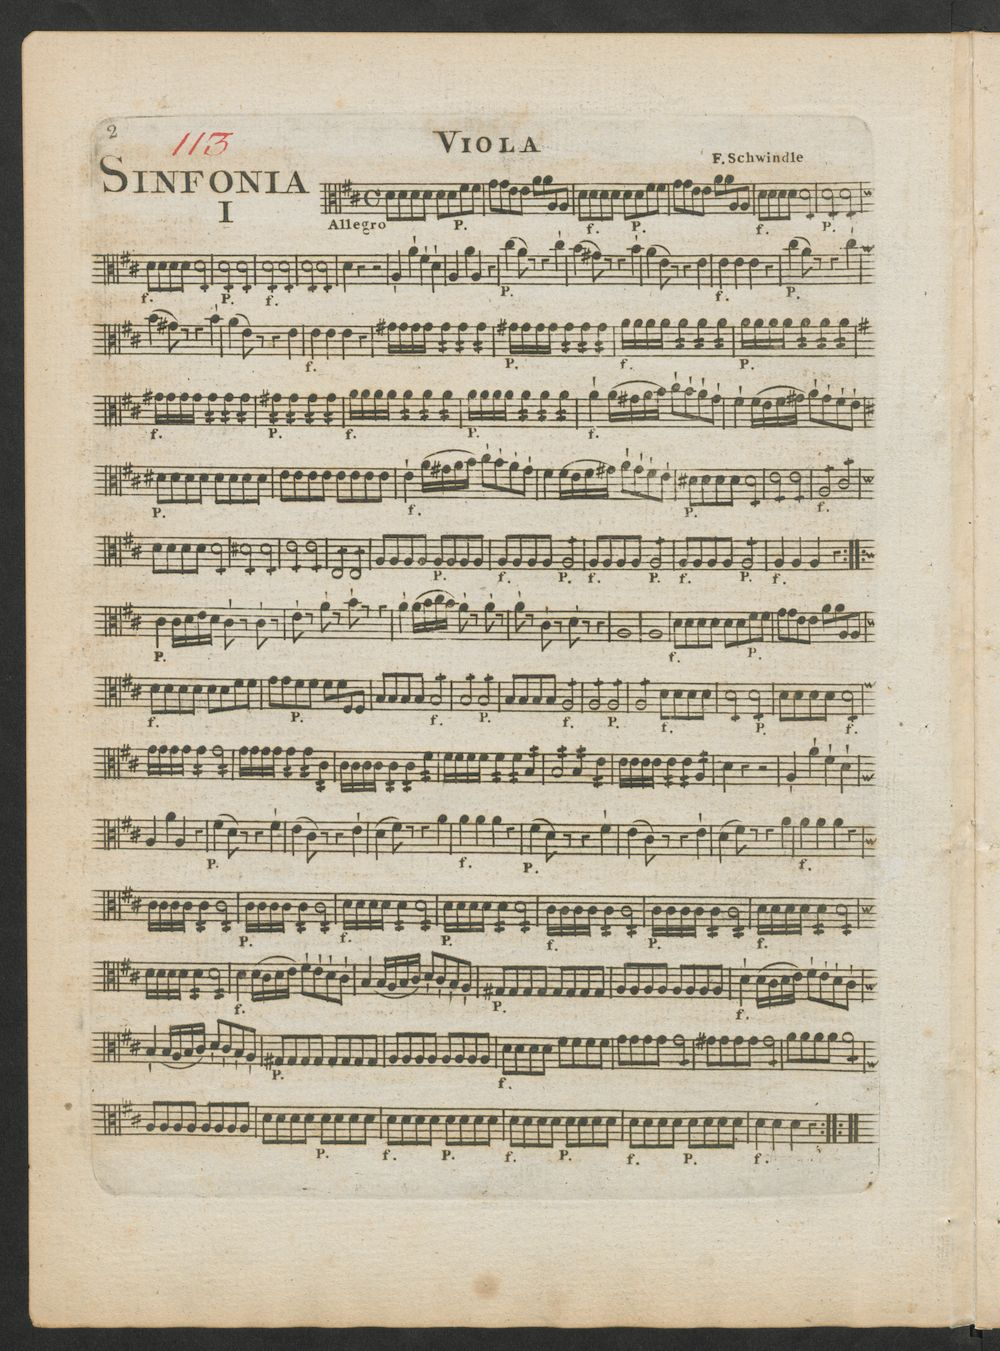 2
113
VIOLA
F. Schwindle
SINFONIA
I
Allegro P. f. P. f. P.
f. P. f. P. f. P.
f. P. f. P.
f. P. f. P. f.
P. f. P. f.
P. f. P. f. P. f. P. f.
P. f. P.
f. P. f. P. f. P. f. P. f.
P. f. P. f.
P. f. P. f. P. f.
f. P. f.
P. f.
P. f. P. f. P. f. P. f.